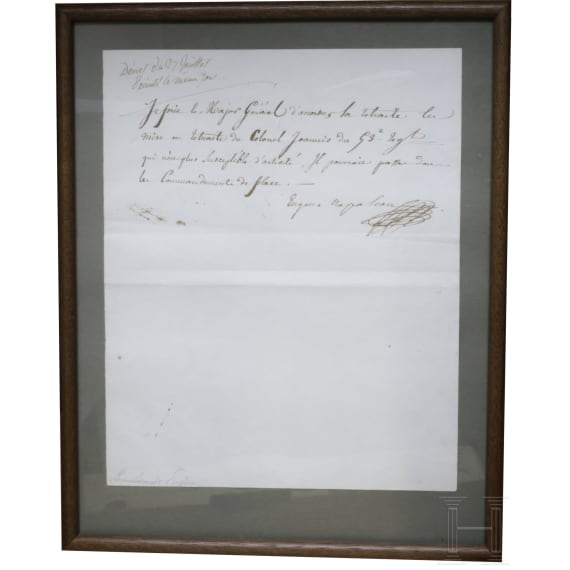 Décret du 27 Juillet
le même jour.
Je prie le Major Général d'accorder la retraite les
mise en retraite du Colonel Joannis du 53e Regt
qui n'est plus susceptible d'activité, Il pourrait passer dans
les Commandements de place. —
Eugene Napoleon
H